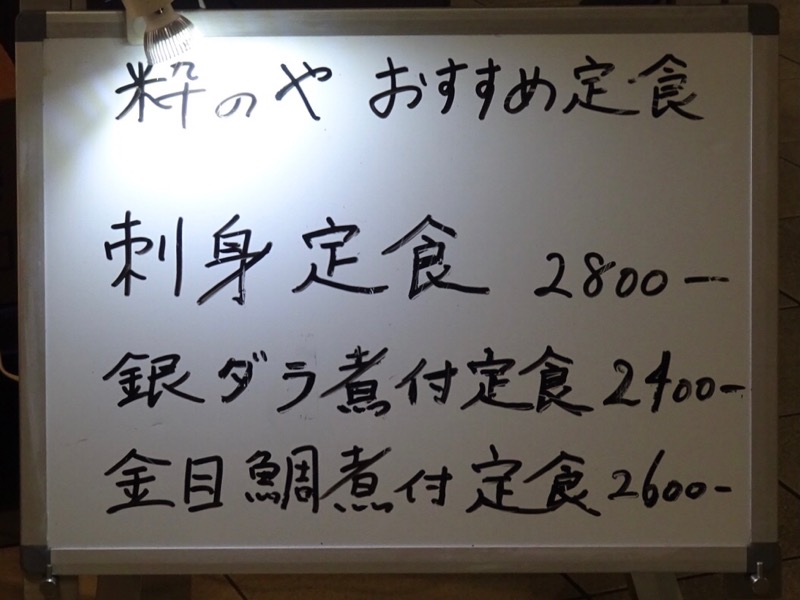 粋のや おすすめ定食
刺身定食 2800-
銀ダラ煮付定食 2400-
金目鯛煮付定食 2600-